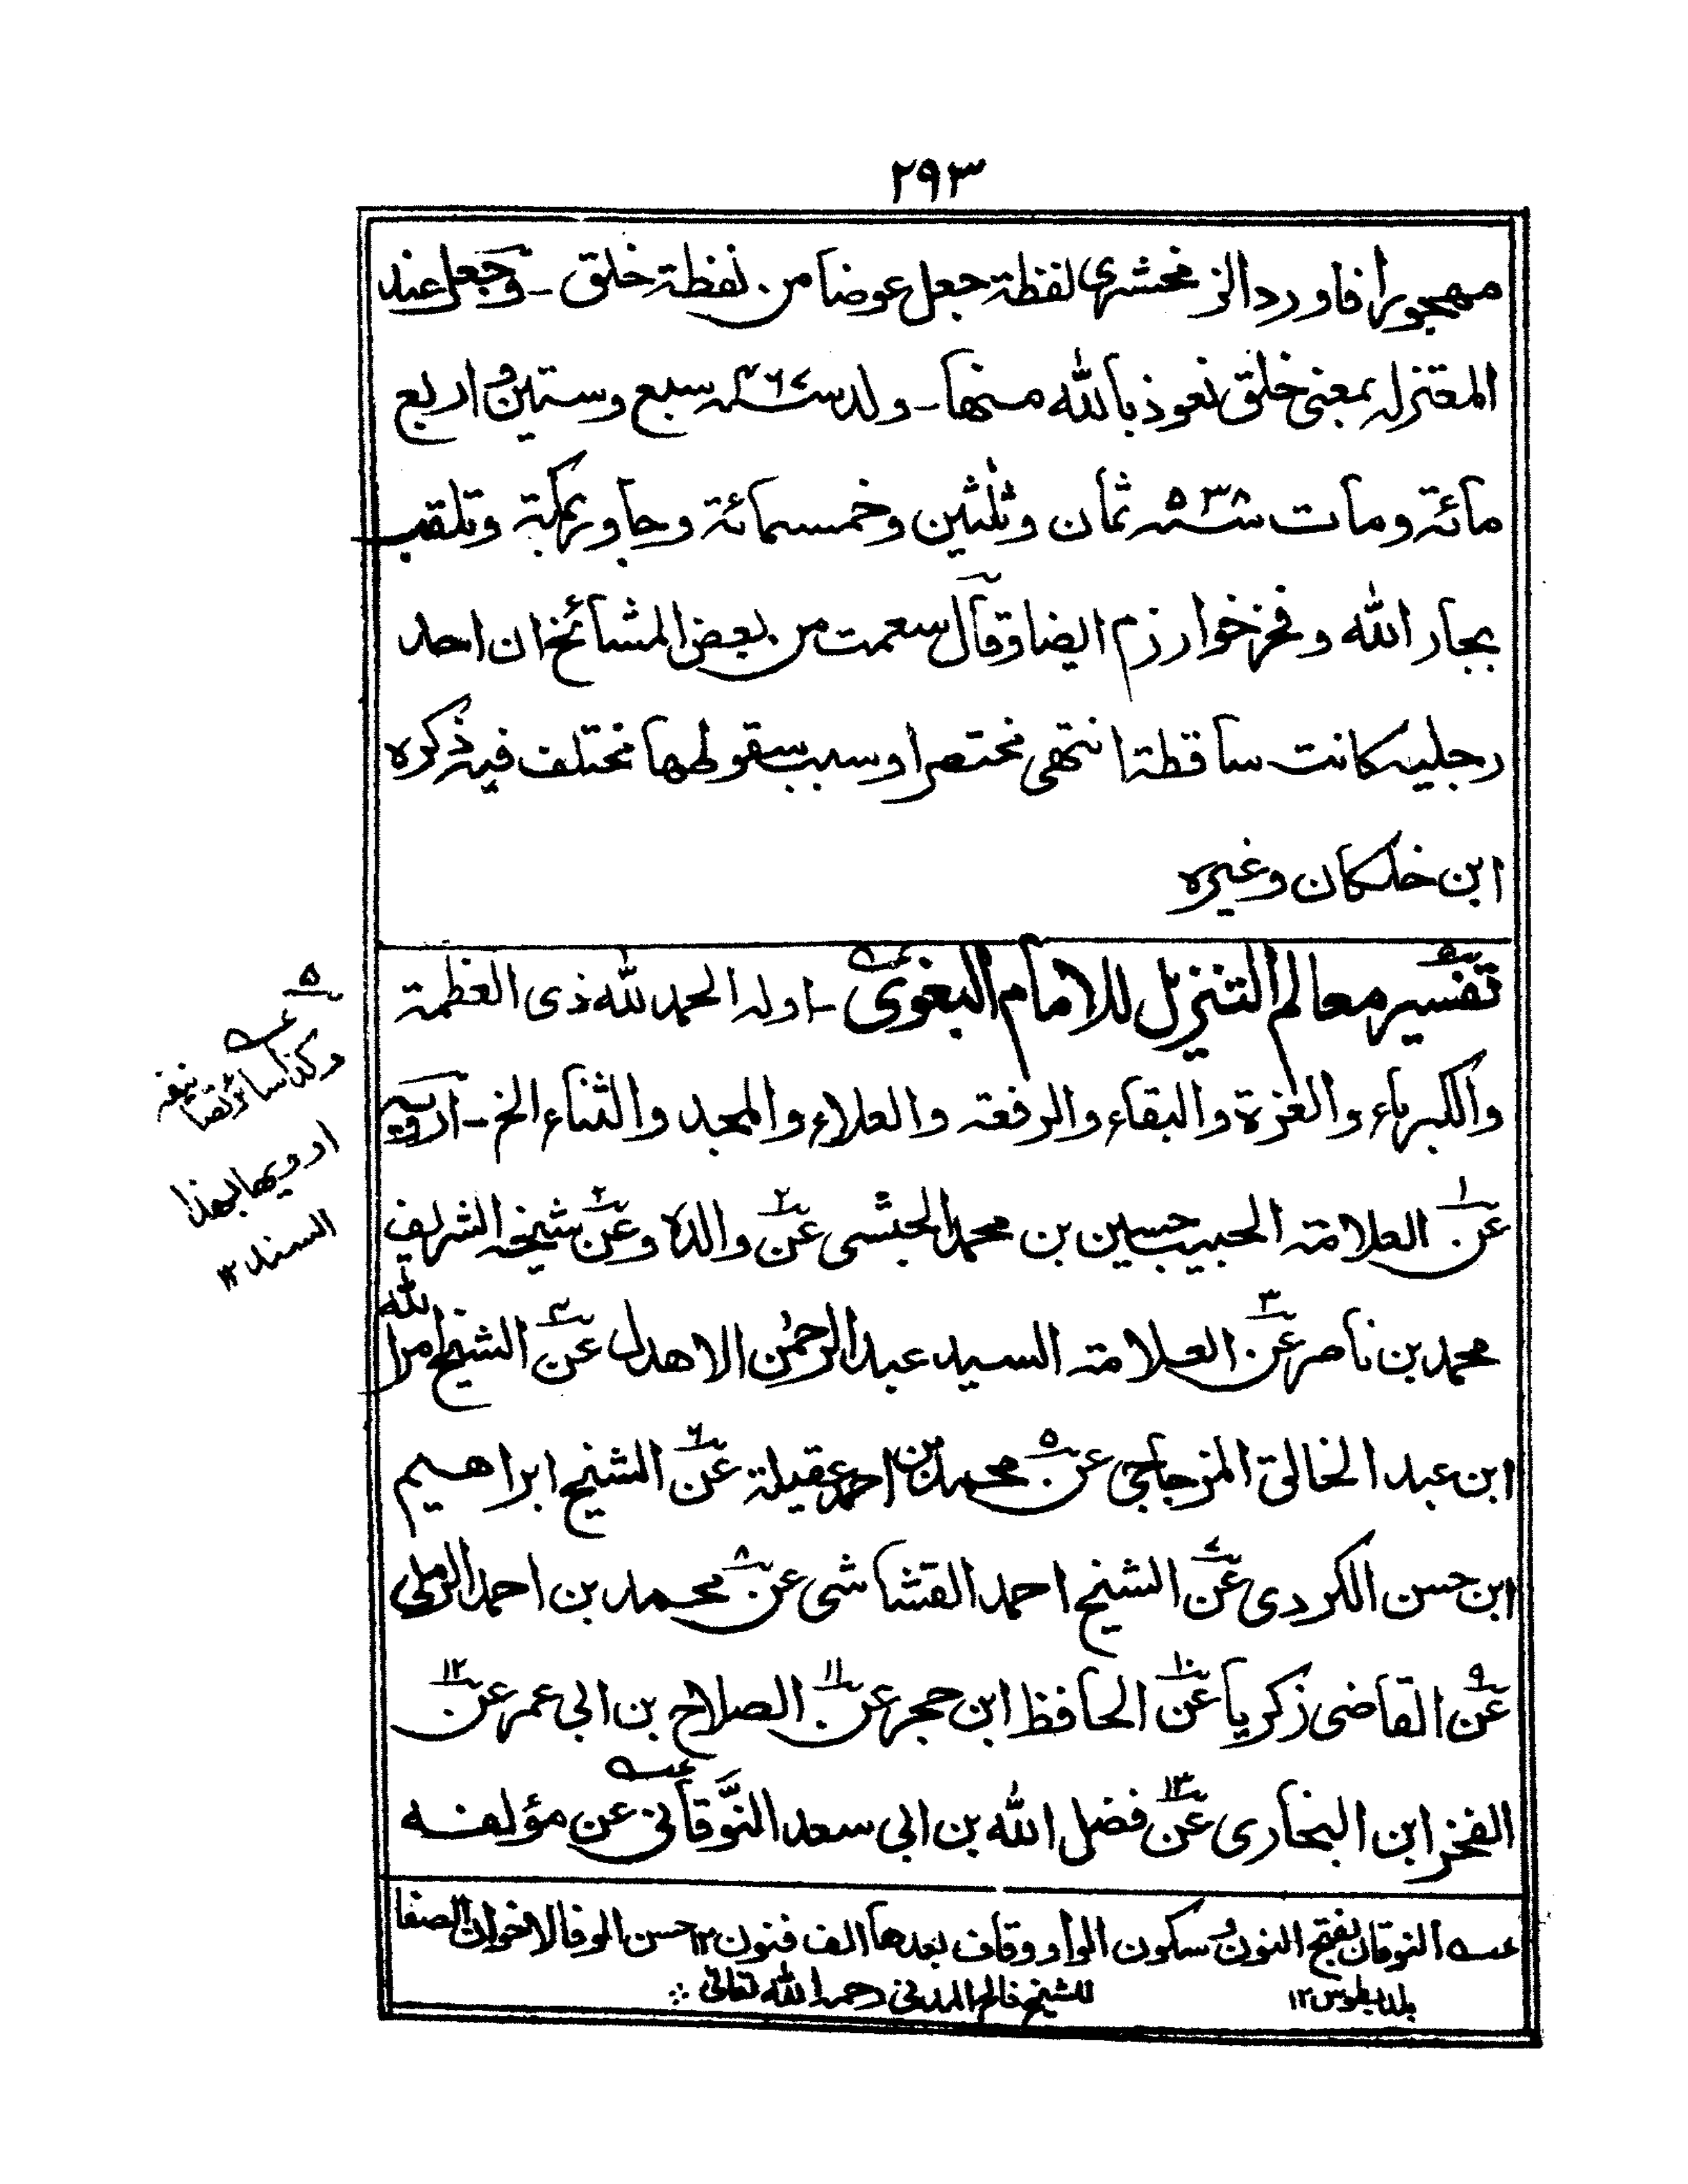 ٢٩٣
مهجورا فاورد الزمخشرى لفظة جعل عوضا من لفظة خلق - وجعل عند
المعتزلہ بمعنى خلق نعوذ بالله منها - ولد سنہ ٤٦٧ سبع وستين و اربع
مائة ومات سنہ ٥٣٨ ثمان وثلثين وخمسمائة وجاور بمكة وتلقب
بجار الله وفخر خوارزم ايضا وقال سمعت من بعض المشائخ ان احد
رجليہ كانت ساقطة انتهى مختصرا وسبب سقوطها مختلف فيہ ذكره
ابن خلكان وغيره
تفسير معالم التنزيل للامام البغوى - اولہ الحمد لله ذى العظمة
والكبرياء والعزة والبقاء والرفعة والعلاء والمجد والثناء الخ - ارويہ
عن ١ العلامة الحبيب حسين بن محمد الحبشى عن ٢ والده وعن ٢ شيخہ الشريف
محمد بن ناصر عن ٣ العلامة السيد عبد الرحمٰن الاهدل عن ٤ الشيخ امر الله
ابن عبد الخالق المزجاجى عن ٥ محمد بن احمد عقيلة عن ٦ الشيخ ابراهيم
ابن حسن الكردى عن ٧ الشيخ احمد القشاشى عن ٨ محمد بن احمد الرملى
عن ٩ القاضى زكريا عن ١٠ الحافظ ابن حجر عن ١١ الصلاح بن ابى عمر عن ١٢
الفخر ابن البخارى عن ١٣ فضل الله بن ابى سعد النَّوقانى عن مؤلفہ
عہ النوقان بفتح النون و سكون الواو وقاف بعدها الف فنون ١٢ حسن الوفا لاخوان الصفا
بلد بطوس ١٢ للشيخ فالح المدنى رحمہ الله تعالى
٥
عہ
وكذا سائر تصانيفہ
ارويها بهذا
السند ١٢